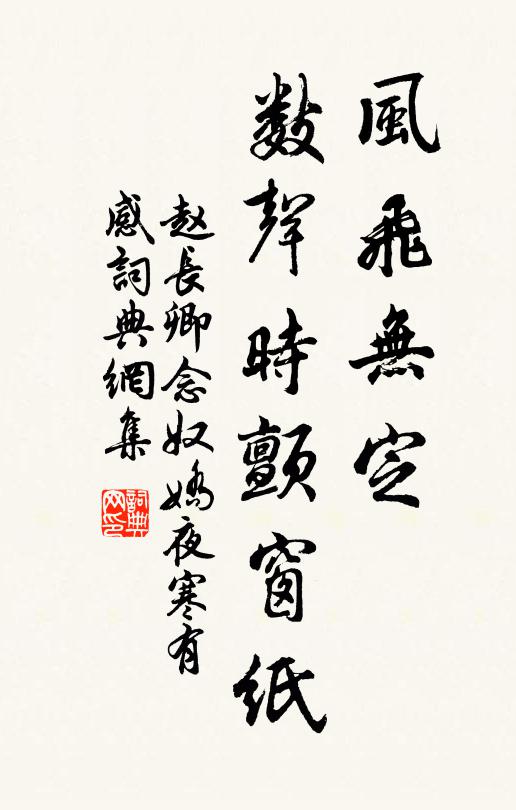 風飛無定
數聲時顫窗紙
赵長卿念奴嬌夜寒有
感詞典網集
詞典
网印